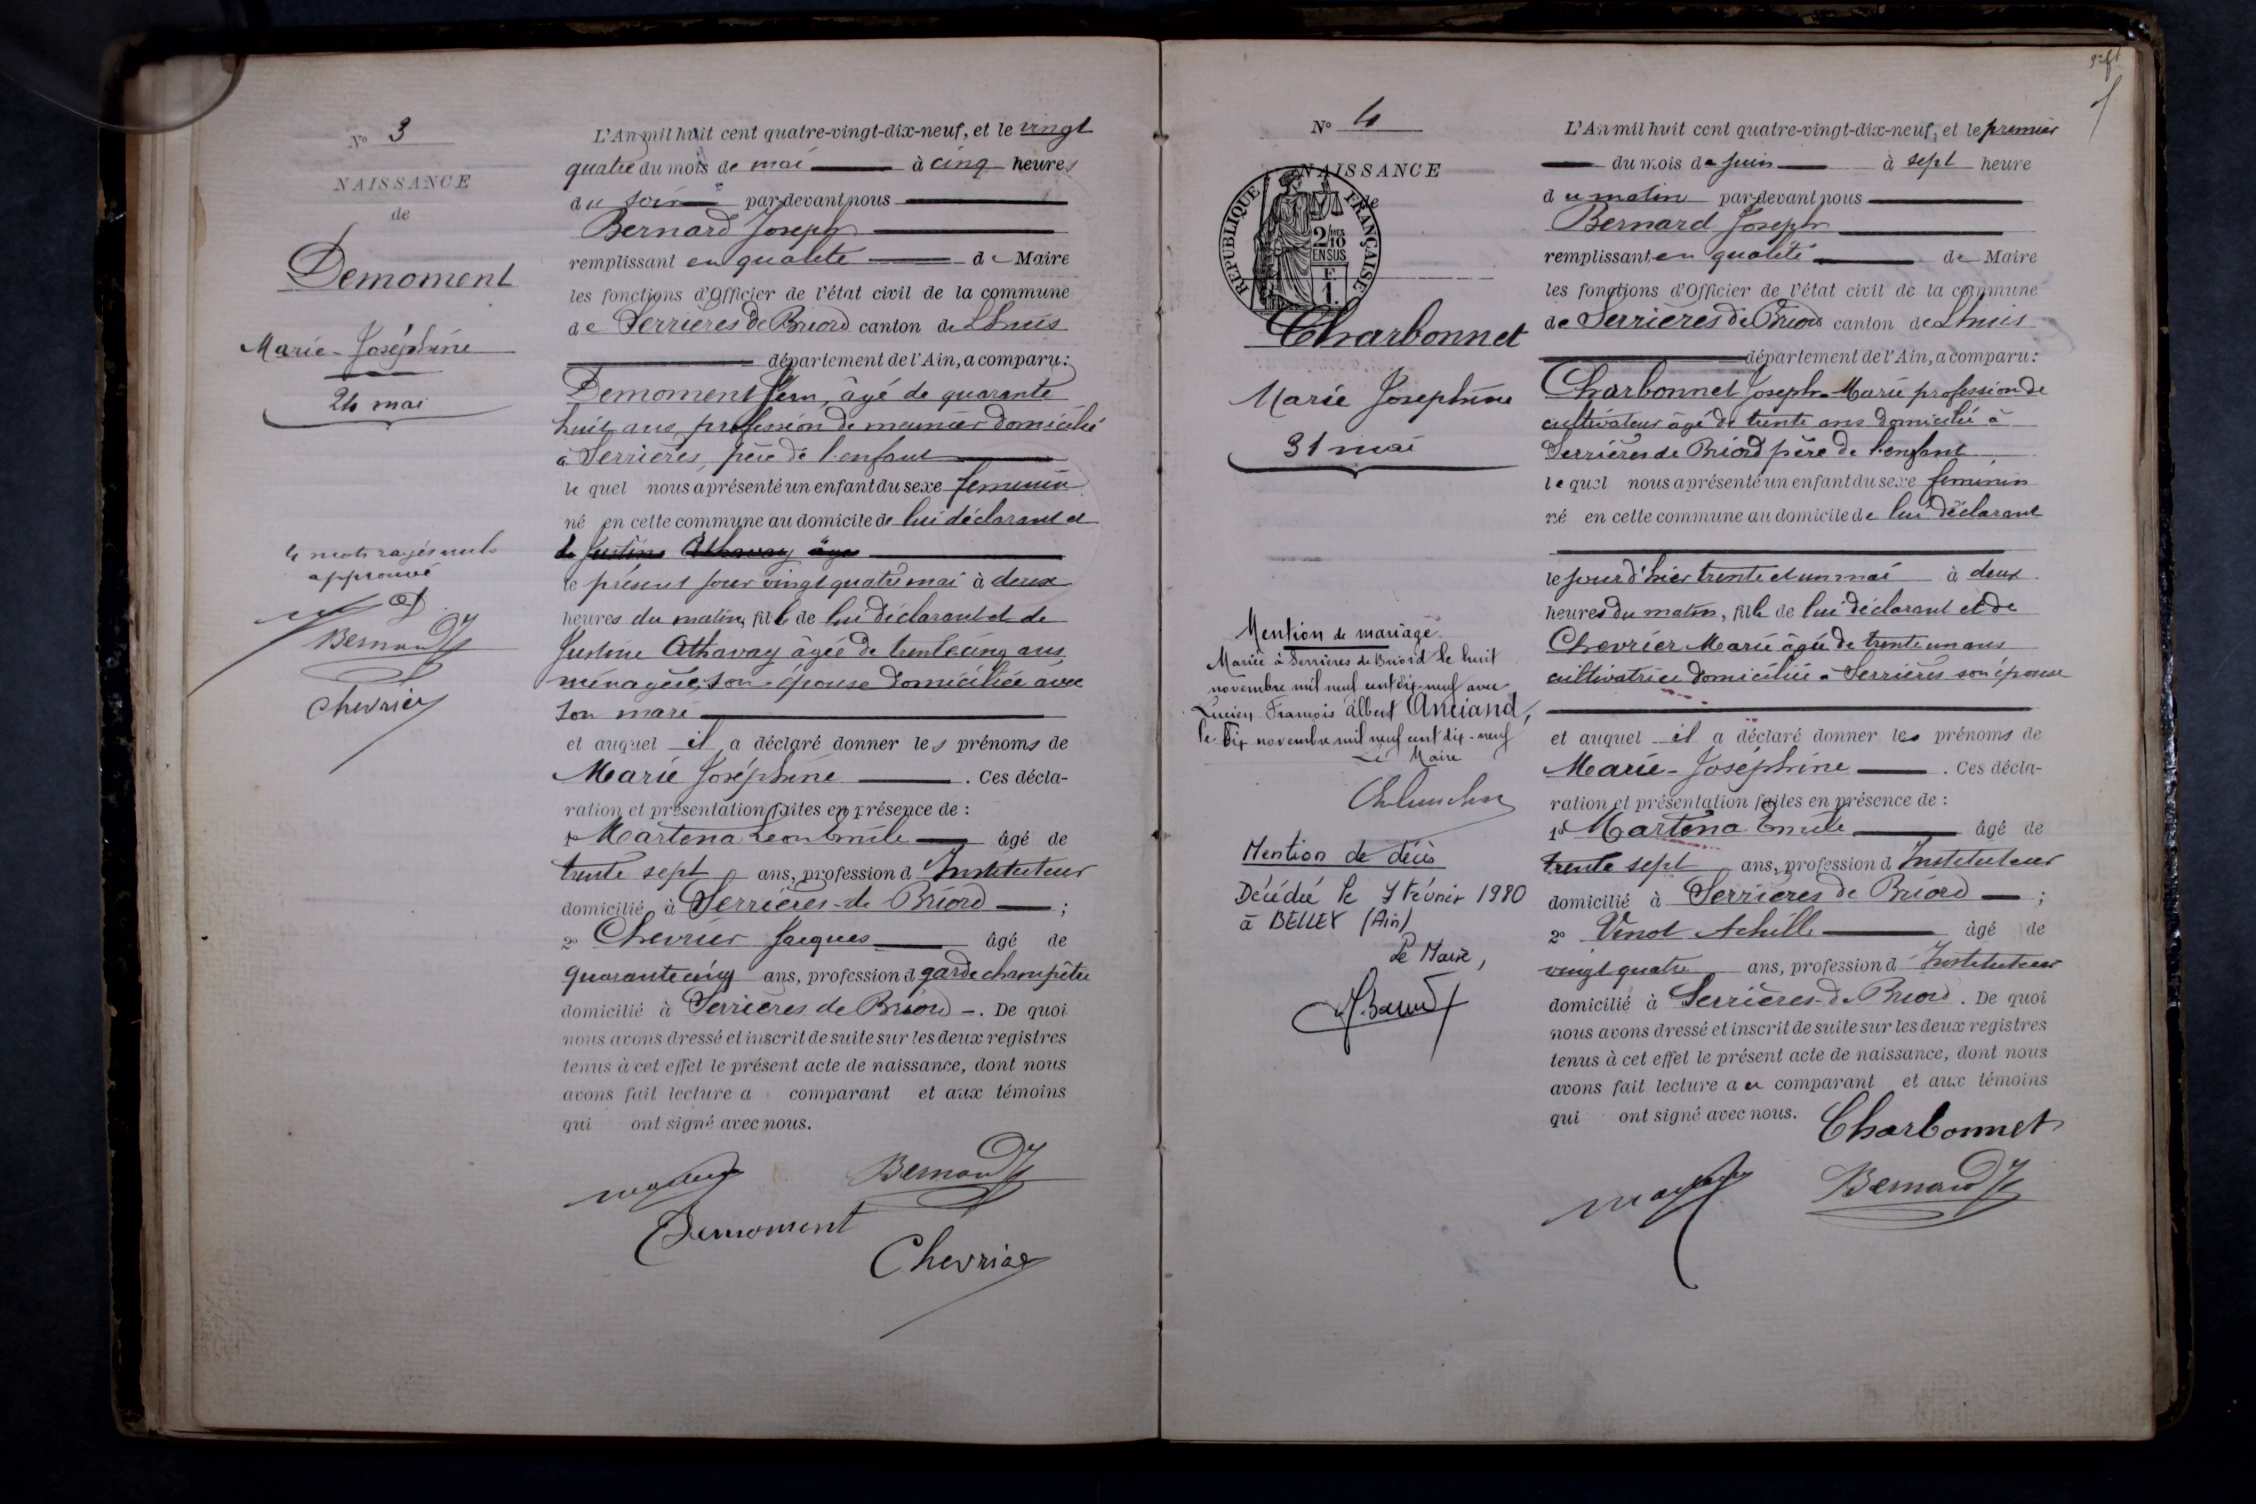 N° 3
NAISSANCE
de
Demoment
Marie-Joséphine
24 mai
4 mots rayés nuls
approuvé
Bernard J
Chevrier
L'An mil huit cent quatre-vingt-dix-neuf, et le vingt
quatre du mois de mai à cinq heures
du soir par-devant nous
Bernard Joseph
remplissant en qualité de Maire
les fonctions d'Officier de l'état civil de la commune
de Serrières de Briord canton de Lhuis
département de l'Ain, a comparu:
Demoment Jean, âgé de quarante
huit ans, profession de meunier domicilié
à Serrières, père de l'enfant
le quel nous a présenté un enfant du sexe féminin
né en cette commune au domicile de lui déclarant et
de Justine Athavay âgée
le présent jour vingt quatre mai à deux
heures du matin, fille de lui déclarant et de
Justine Athavay âgée de trente cinq ans
ménagère, son épouse domiciliée avec
son mari
et auquel il a déclaré donner les prénoms de
Marie Joséphine . Ces décla-
ration et présentation faites en présence de :
1° Martena Léon Emile âgé de
trente sept ans, profession d'Instituteur
domicilié à Serrières-de Briord ;
2° Chevrier Jacques âgé de
quarante cinq ans, profession d garde champêtre
domicilié à Serrières de Briord -. De quoi
nous avons dressé et inscrit de suite sur les deux registres
tenus à cet effet le présent acte de naissance, dont nous
avons fait lecture a comparant et aux témoins
qui ont signé avec nous.
Bernard J
Demoment
Chevrier
N° 4
NAISSANCE
de
REPUBLIQUE FRANÇAISE
2/10 EN SUS
F.
1.
Charbonnet
Marie Josephine
31 mai
Mention de mariage.
Mariée à Serrières de Briord le huit
novembre mil neuf cent dix-neuf avec
Lucien François Albert Anciand,
le dix novembre mil neuf cent dix-neuf
Le Maire
Mention de décès
Décédée le 7 Février 1980
à BELLEY (Ain)
Le Maire,
L'An mil huit cent quatre-vingt-dix-neuf, et le premier
du mois de juin à sept heure
du matin par-devant nous
Bernard Joseph
remplissant en qualité de Maire
les fonctions d'Officier de l'état civil de la commune
de Serrières de Briord canton de Lhuis
département de l'Ain, a comparu:
Charbonnet Joseph-Marie profession de
cultivateur âgé de trente ans domicilié à
Serrières de Briord père de l'enfant
le quel nous a présenté un enfant du sexe féminin
né en cette commune au domicile de lui déclarant
le jour d'hier trente et un mai à deux
heures du matin, fille de lui déclarant et de
Chevrier Marie âgée de trente un ans
cultivatrice domiciliée à Serrières son épouse
et auquel il a déclaré donner les prénoms de
Marie-Joséphine . Ces décla-
ration et présentation faites en présence de :
1° Martena Emile âgé de
trente sept ans, profession d'Instituteur
domicilié à Serrières de Briord ;
2° Vinot Achille âgé de
vingt quatre ans, profession d'Instituteur
domicilié à Serrières-de Briord . De quoi
nous avons dressé et inscrit de suite sur les deux registres
tenus à cet effet le présent acte de naissance, dont nous
avons fait lecture au comparant et aux témoins
qui ont signé avec nous.
Charbonnet
Bernard J